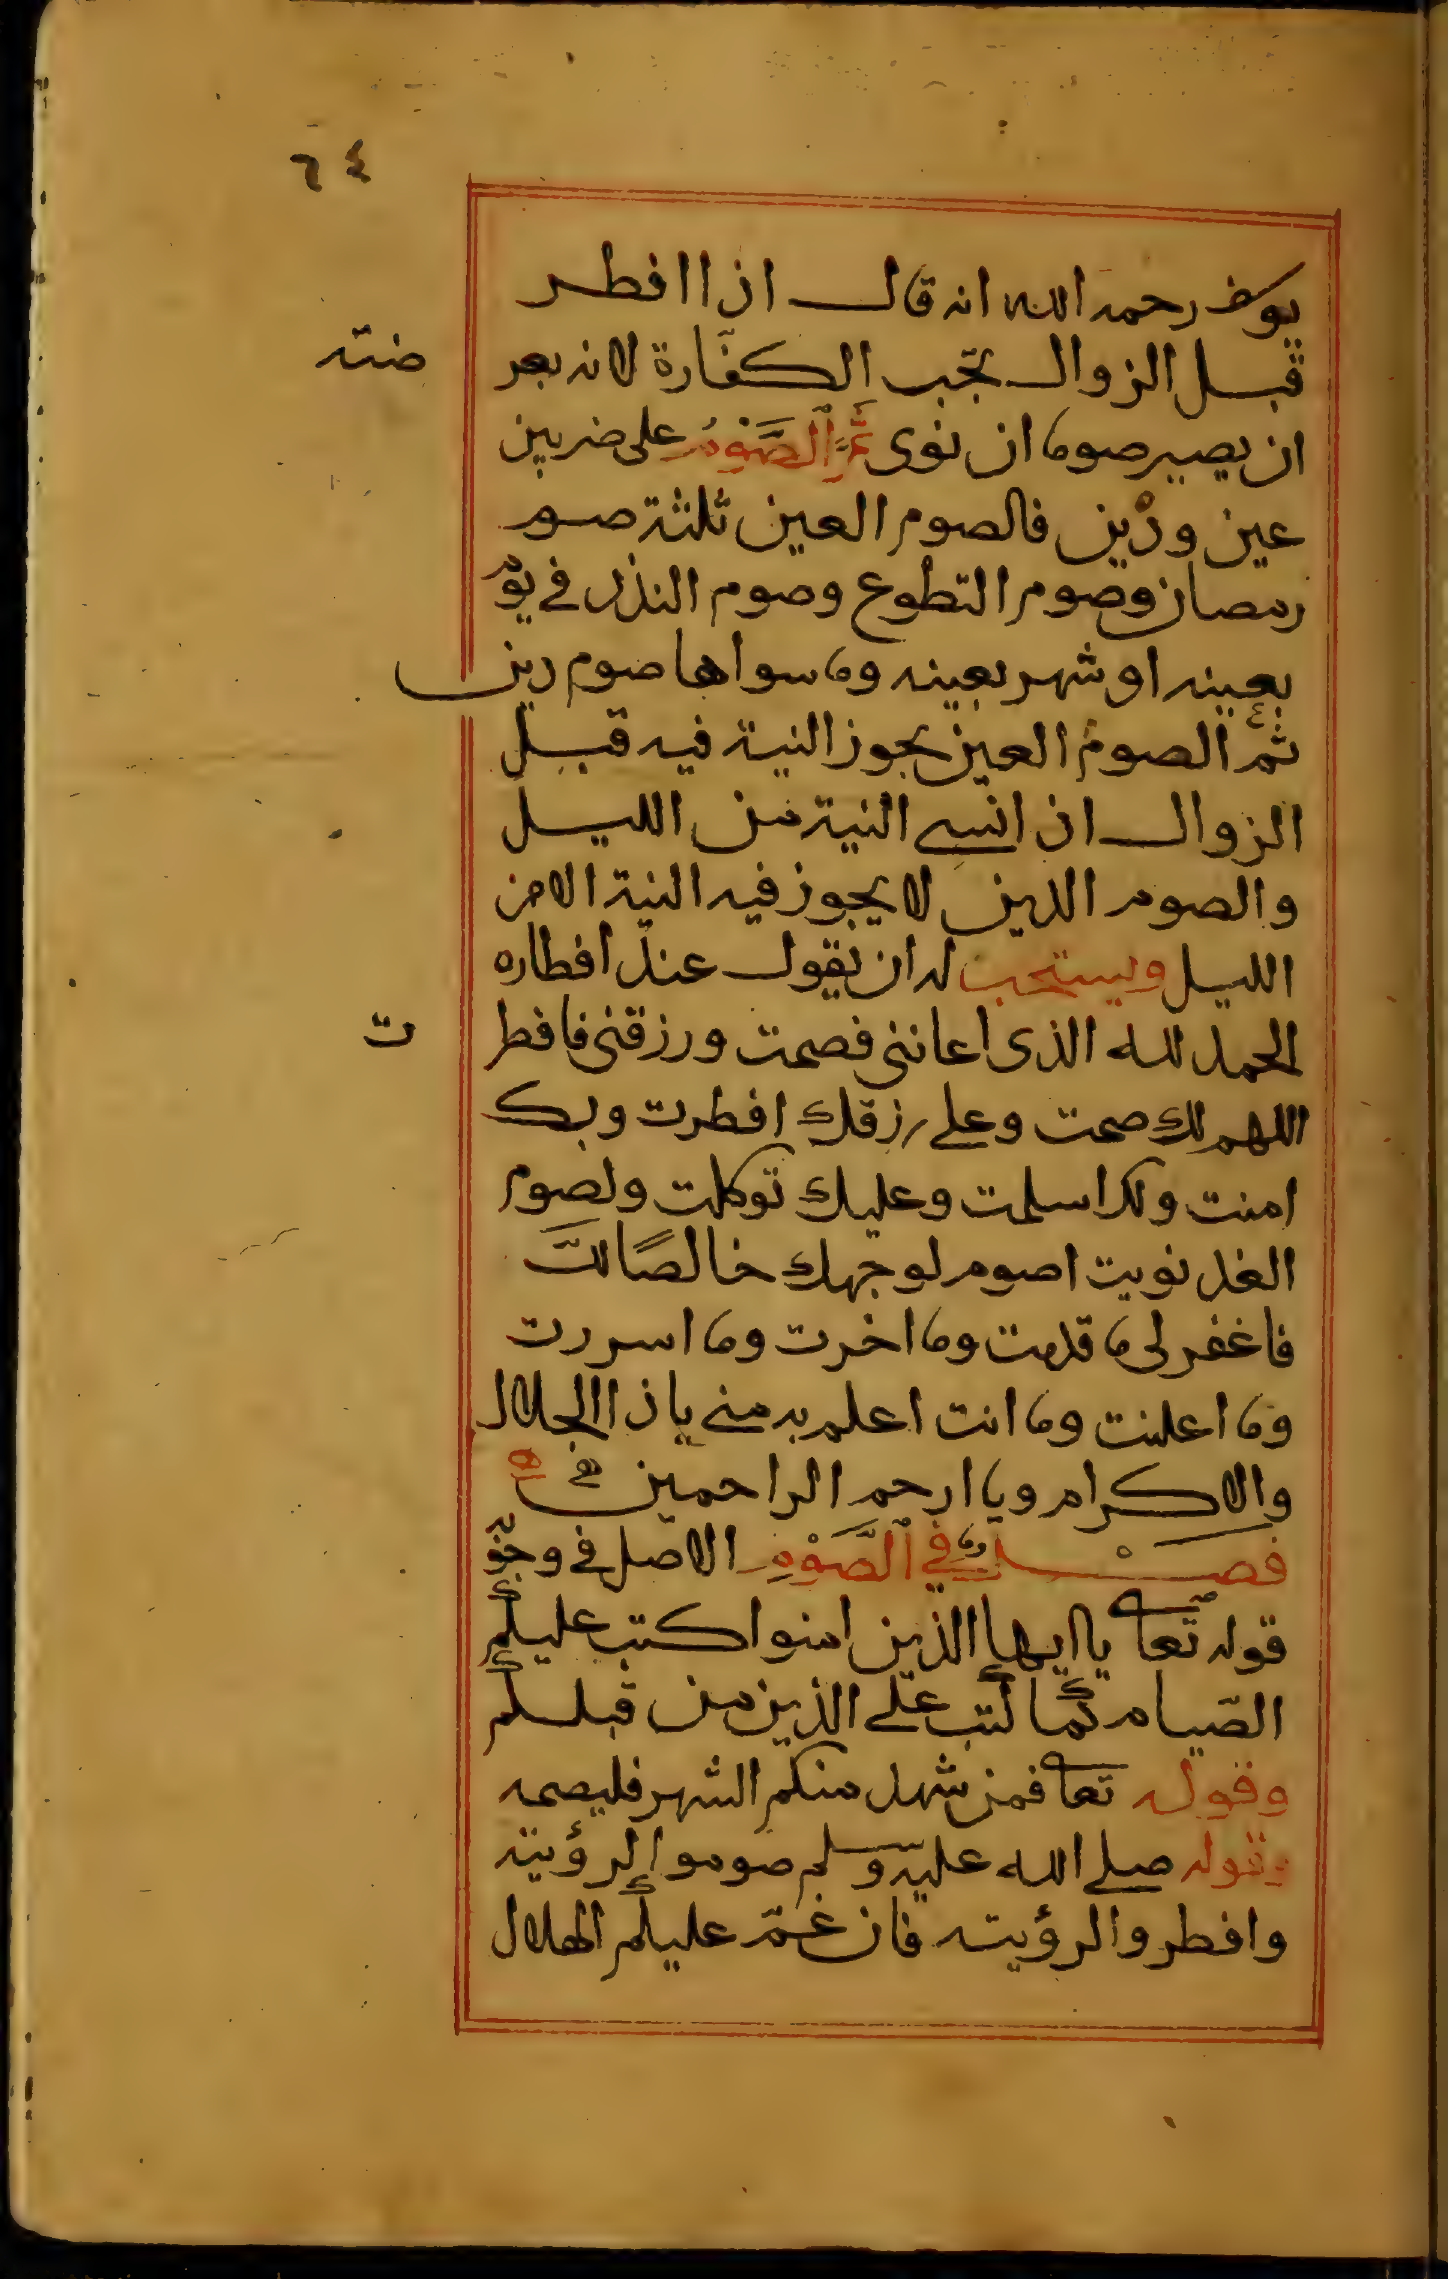 ٦٤
يوسف رحمه الله انه قال اذا افطر
قبل الزوال تجب الكفارة لانه بعر ضته
ان يصير صوما ان نوى ثم الصوم على ضربين
عين ودين فالصوم العين ثلثة صوم
رمضان وصوم التطوع وصوم النذر في يوم
بعينه او شهر بعينه وما سواها صوم دين
ثم الصوم العين يجوز النية فيه قبل
الزوال ان انسي النية من الليل
والصوم الدين لا يجوز فيه النية الا من
الليل ويستحب له ان يقول عند افطاره
الحمد لله الذى اعاننى فصمت ورزقنى فافطر ت
اللهم لك صمت وعلى رزقك افطرت وبك
امنت ولك اسلمت وعليك توكلت ولصوم
الغد نويت اصوم لوجهك خالصًا لك
فاغفر لى ما قدمت وما اخرت وما اسررت
وما اعلنت وما انت اعلم به منى يا ذا الجلال
والاكرام ويا ارحم الراحمين
فصل في الصوم الاصل فى وجوبه
قوله تعا يا ايها الذين امنوا كتب عليكم
الصيام كما كتب على الذين من قبلكم
وقوله تعا فمن شهد منكم الشهر فليصمه
وقوله صلى الله عليه وسلم صوموا لرؤيته
وافطروا لرؤيته فان غم عليكم الهلال